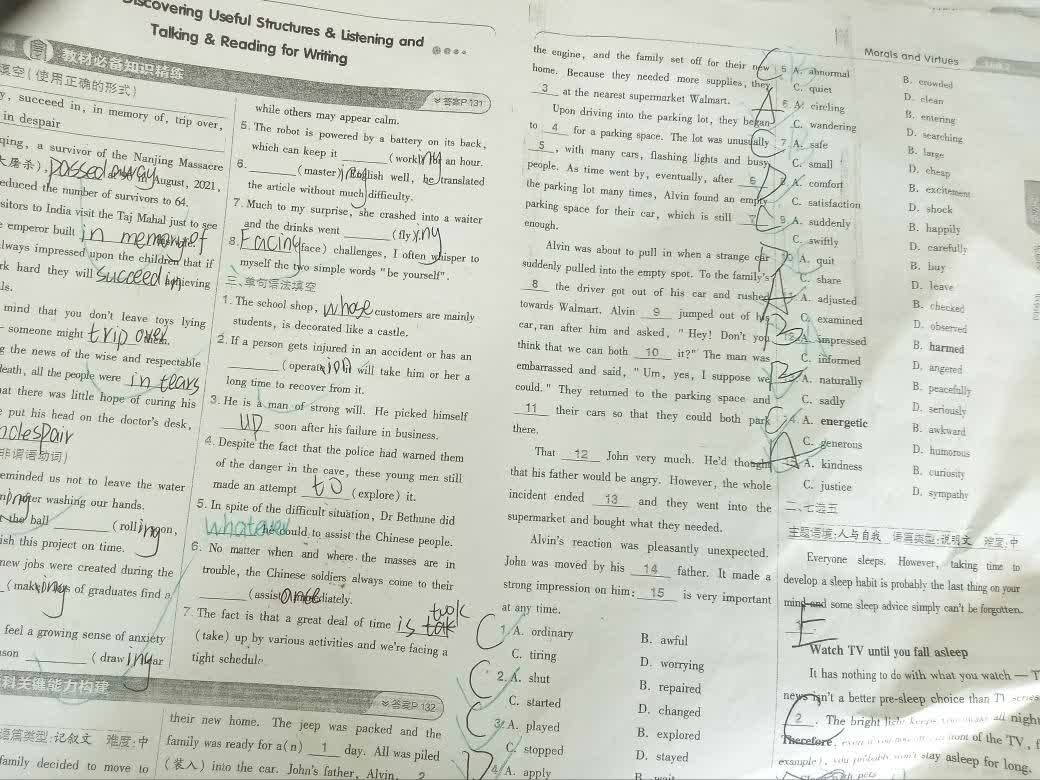 Discovering Useful Structures & Listening and
Talking & Reading for Writing
教材必备知识精练
答案P 131
填空(使用正确的形式)
y, succeed in, in memory of, trip over,
in despair
qing, a survivor of the Nanjing Massacre
大屠杀), passed away at 90 in August, 2021,
educed the number of survivors to 64.
sitors to India visit the Taj Mahal just to see
e emperor built in memory of
lways impressed upon the children that if
rk hard they will succeed in achieving
ls.
mind that you don't leave toys lying
someone might trip over them.
g the news of the wise and respectable
death, all the people were in tears
at there was little hope of curing his
e put his head on the doctor's desk,
非谓语动词)
eminded us not to leave the water
ing after washing our hands.
t the ball ____ (roll) ing on,
ish this project on time.
new jobs were created during the
(make) ing of graduates find a
feel a growing sense of anxiety
son ____ (draw) ing near
科关键能力构建
答案P 132
语篇类型:记叙文 难度:中
family decided to move to
while others may appear calm.
5. The robot is powered by a battery on its back,
which can keep it ____ (work) ing an hour.
6. ____ (master) ing English well, he translated
the article without much difficulty.
7. Much to my surprise, she crashed into a waiter
and the drinks went ____ (fly) ing
8. Facing (face) challenges, I often whisper to
myself the two simple words "be yourself".
三、单句语法填空
1. The school shop, whose customers are mainly
students, is decorated like a castle.
2. If a person gets injured in an accident or has an
____ (operate) ion it will take him or her a
long time to recover from it.
3. He is a man of strong will. He picked himself
up soon after his failure in business.
4. Despite the fact that the police had warned them
of the danger in the cave, these young men still
made an attempt to (explore) it.
5. In spite of the difficult situation, Dr Bethune did
whatever he could to assist the Chinese people.
6. No matter when and where the masses are in
trouble, the Chinese soldiers always come to their
____ (assist) ance immediately.
7. The fact is that a great deal of time is
(take) up by various activities and we're facing a
tight schedule.
their new home. The jeep was packed and the
family was ready for a(n) 1 day. All was piled
(装人) into the car. John's father, Alvin, 2
the engine, and the family set off for their new
home. Because they needed more supplies, they
3 at the nearest supermarket Walmart.
Upon driving into the parking lot, they began
to 4 for a parking space. The lot was unusually
5 , with many cars, flashing lights and busy
people. As time went by, eventually, after 6
the parking lot many times, Alvin found an empty
parking space for their car, which is still 7
enough.
Alvin was about to pull in when a strange car
suddenly pulled into the empty spot. To the family's
8 the driver got out of his car and rushed
towards Walmart. Alvin 9 jumped out of his
car, ran after him and asked, "Hey! Don't you
think that we can both 10 it?" The man was
embarrassed and said, "Um, yes, I suppose we
could." They returned to the parking space and
11 their cars so that they could both park
there.
That 12 John very much. He'd thought
that his father would be angry. However, the whole
incident ended 13 and they went into the
supermarket and bought what they needed.
Alvin's reaction was pleasantly unexpected.
John was moved by his 14 father. It made a
strong impression on him: 15 is very important
at any time.
C 1. A. ordinary B. awful
C. tiring D. worrying
C 2. A. shut B. repaired
C. started D. changed
C 3. A. played B. explored
C. stopped D. stayed
D 4. A. apply B. wait
Morals and Virtues
C 5. A. abnormal B. crowded
C. quiet D. clean
A 6. A. circling B. entering
C. wandering D. searching
C 7. A. safe B. large
C. small D. cheap
8. A. comfort B. excitement
C. satisfaction D. shock
9. A. suddenly B. happily
C. swiftly D. carefully
10. A. quit B. buy
C. share D. leave
A. adjusted B. checked
C. examined D. observed
12. A. impressed B. harmed
C. informed D. angered
B A. naturally B. peacefully
C. sadly D. seriously
C 14. A. energetic B. awkward
C. generous D. humorous
A. kindness B. curiosity
C. justice D. sympathy
二、七选五
主题语境:人与自我 语篇类型:说明文 难度:中
Everyone sleeps. However, taking time to
develop a sleep habit is probably the last thing on your
mind and some sleep advice simply can't be forgotten.
E
Watch TV until you fall asleep
It has nothing to do with what you watch — T
news isn't a better pre-sleep choice than TV series
2 . The bright light keeps you awake all night
Therefore, even if you in front of the TV, f
example), you probably won't stay asleep for long.